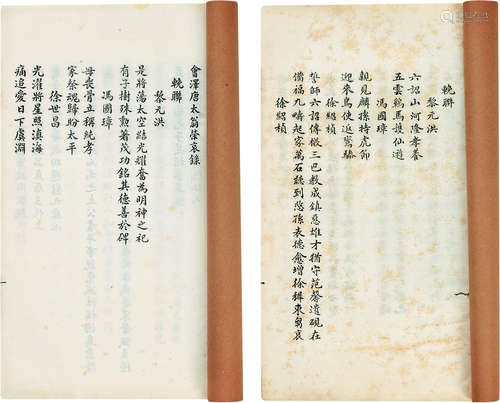 會澤唐太翁榮哀錄
輓聯
黎元洪
是將蕩太空光耀奮為明神之祀
有子樹殊勳著茂功銘其德善於碑
馮國璋
母喪骨立稱純孝
家祭魂歸盼太平
徐世昌
光濯將星照滇海
痛追愛日下虞淵
輓聯
黎元洪
六詔山河隆孝養
五雲鷄馬護仙遊
馮國璋
親見麟孫持虎節
迎來鳥使返鸞驂
徐紹楨
誓師六詔傳檄三巴教成鎮惡雄才猶守范馨遺硯在
備福九疇起家萬石聽到悲孫表德愈增徐稺束芻哀
徐紹楨